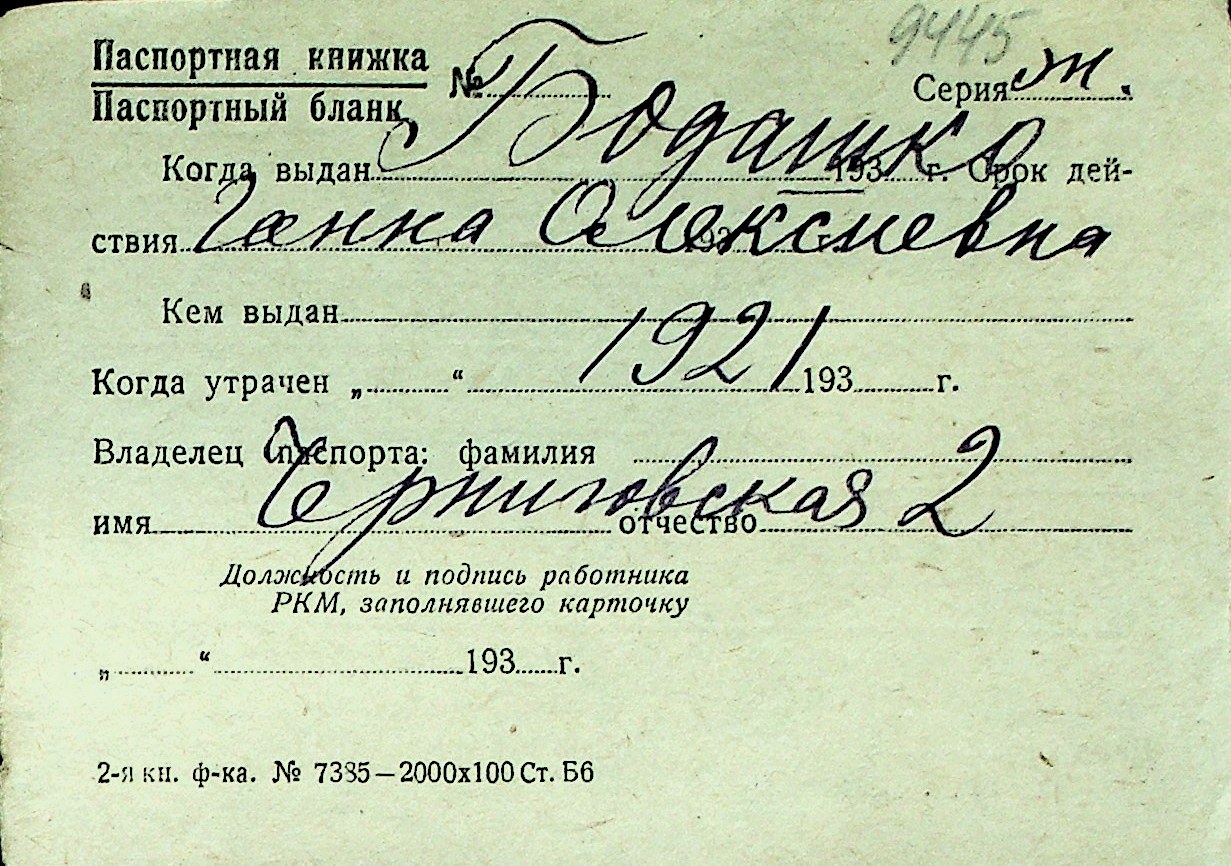 9445
Паспортная книжка
Паспортный бланк № Серия ж.
Бодашко
Когда выдан 193 г. Срок дей-
ствия 193 г.
Ганна Олексиевна
Кем выдан
1921
Когда утрачен „ “ 193 г.
Владелец паспорта: фамилия
Черниговская 2
имя отчество
Должность и подпись работника
РКМ, заполнявшего карточку
„ “ 193 г.
2-я кн. ф-ка. № 7385—2000х100 Ст. Б6